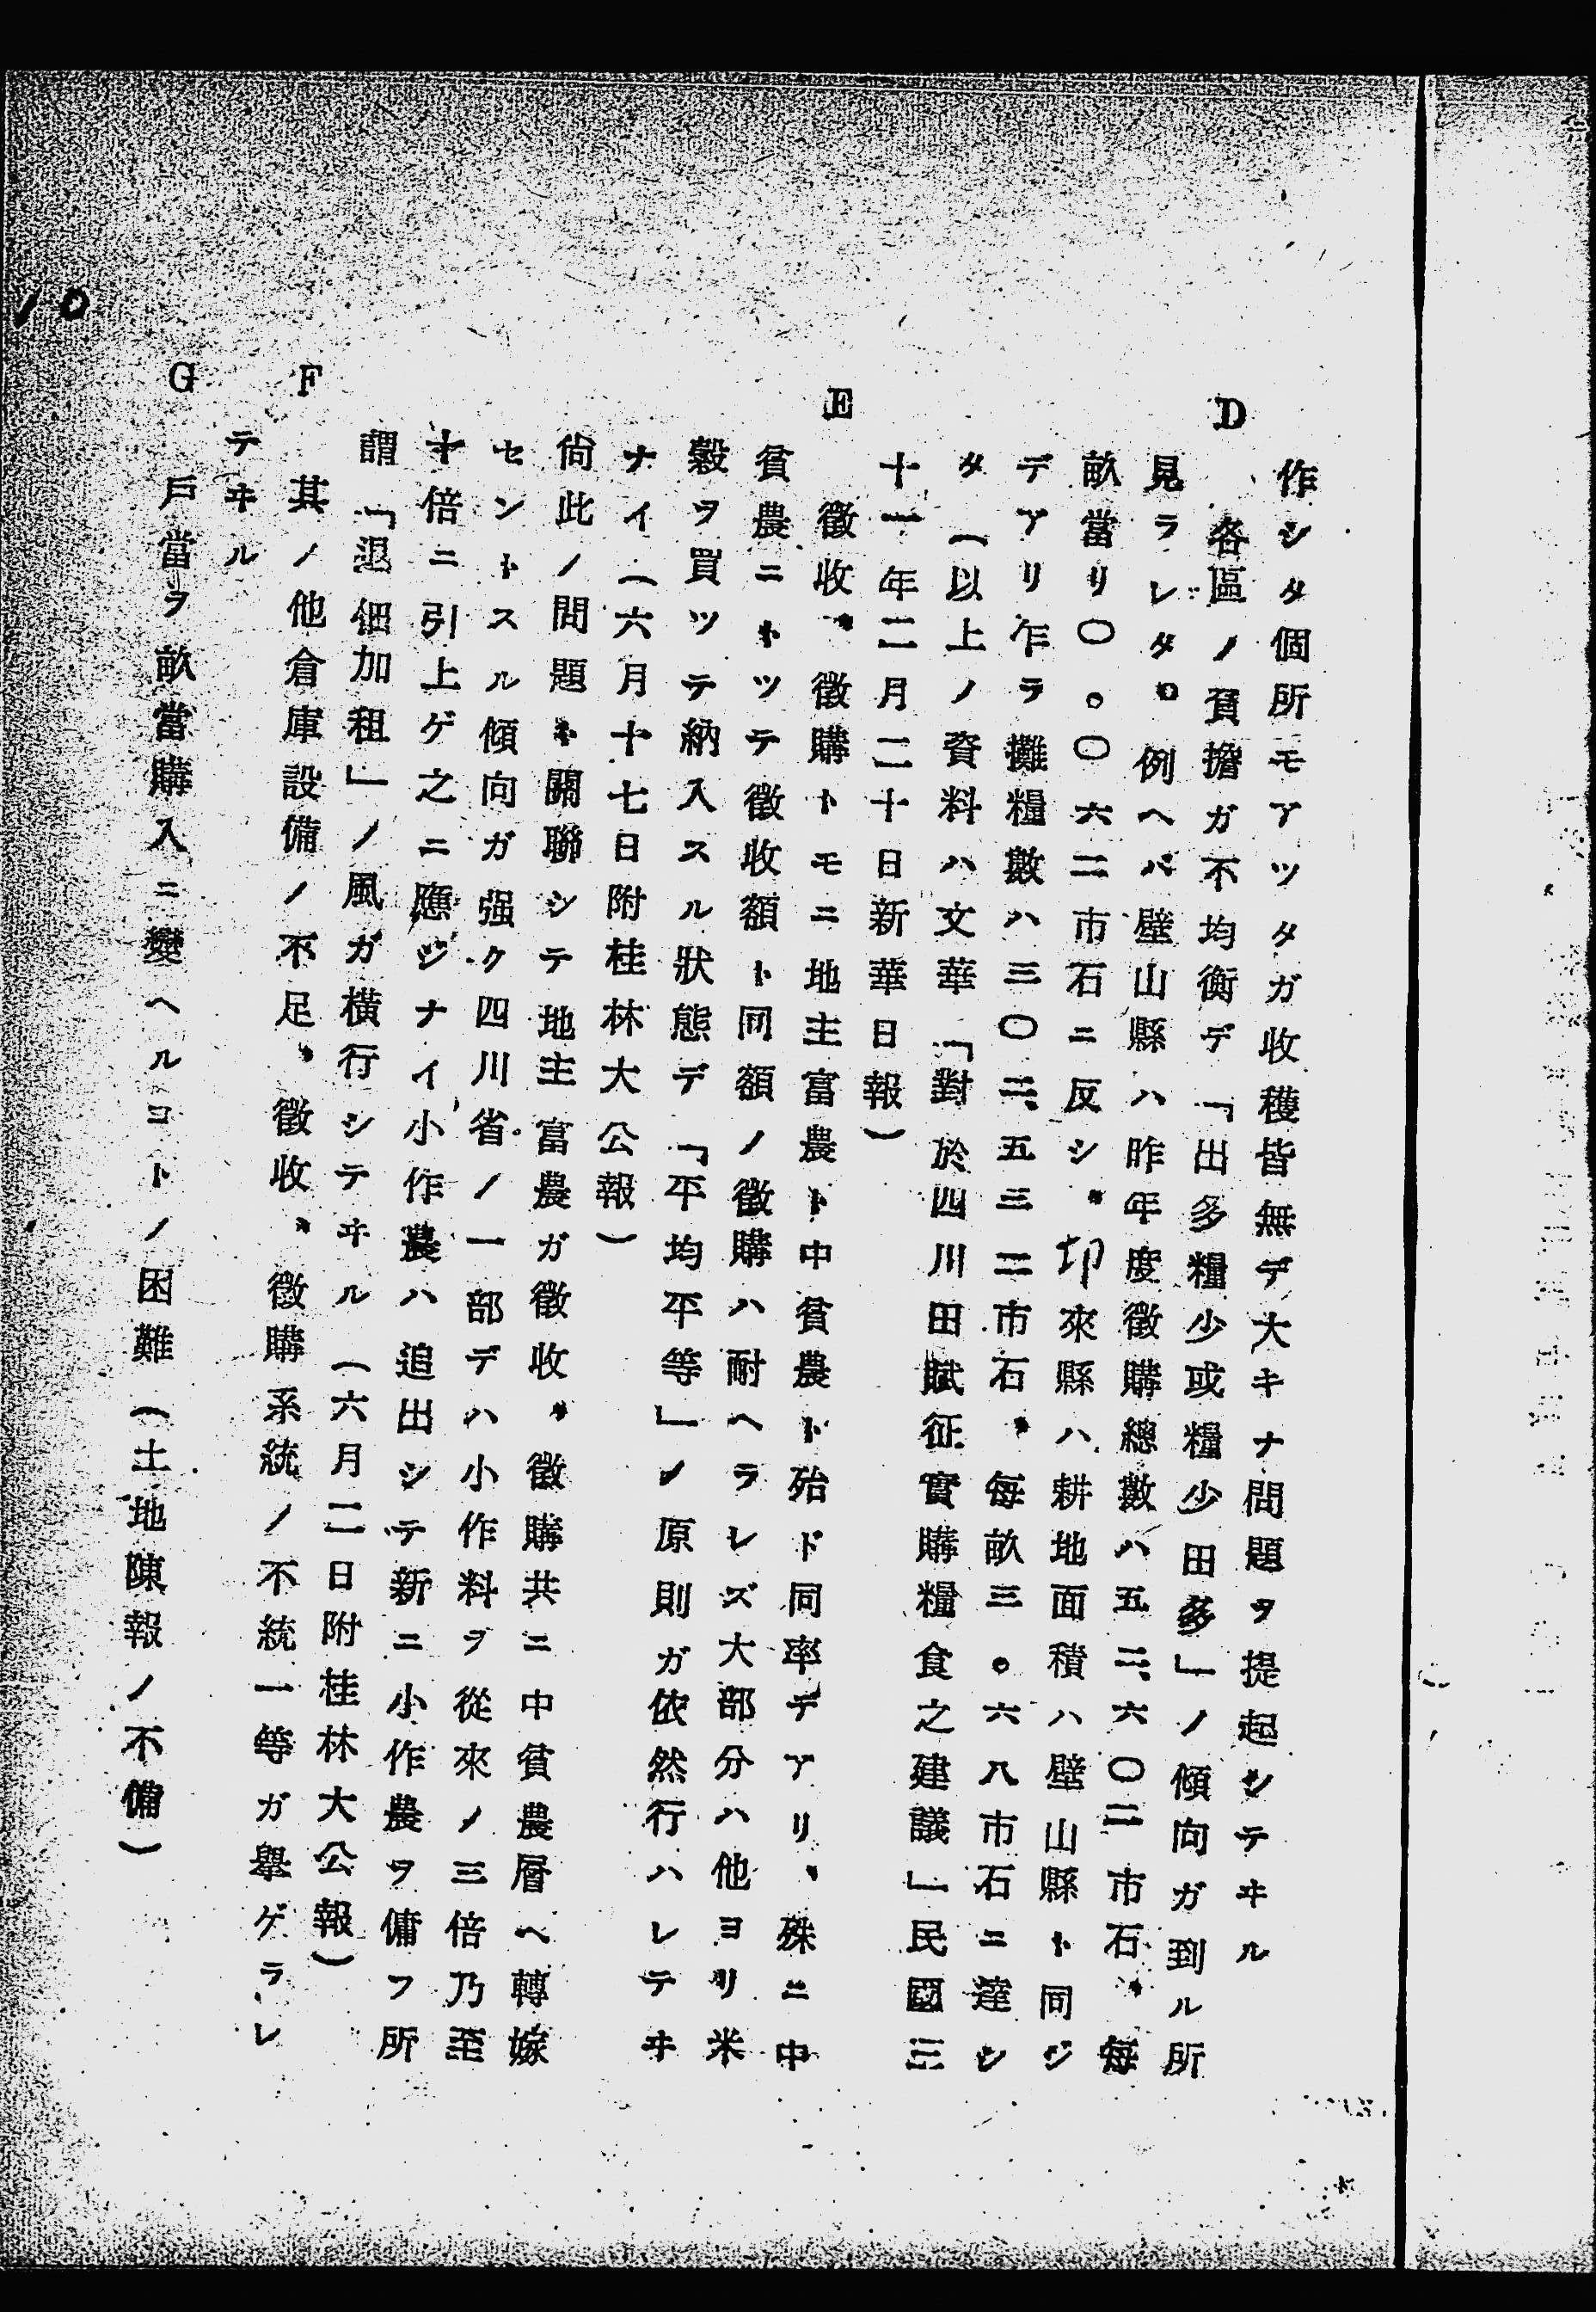 作シタ個所モアツタガ收穫皆無デ大キナ問題ヲ提起シテヰル
D 各區ノ負擔ガ不均衡デ「出多糧少或糧少田多」ノ傾向ガ到ル所
見ラレタ。例ヘバ壁山縣ハ昨年度徵購總數ハ五二、六〇二市石、每
畝當リ〇。〇六二市石ニ反シ、邛來縣ハ耕地面積ハ壁山縣ト同ジ
デアリ乍ラ攤糧數ハ三〇二、五三二市石、每畝三。六八市石ニ達シ
タ（以上ノ資料ハ文華「對於四川田賦征實購糧食之建議」民國三
十一年二月二十日新華日報）
E 徵收、徵購トモニ地主富農ト中貧農ト殆ド同率デアリ、殊ニ中
貧農ニトツテ徵收額ト同額ノ徵購ハ耐ヘラレズ大部分ハ他ヨリ米
穀ヲ買ツテ納入スル狀態デ「平均平等」ノ原則ガ依然行ハレテヰ
ナイ（六月十七日附桂林大公報）
尙此ノ問題ト關聯シテ地主富農ガ徵收、徵購共ニ中貧農層ヘ轉嫁
セントスル傾向ガ强ク四川省ノ一部デハ小作料ヲ從來ノ三倍乃至
十倍ニ引上ゲ之ニ應ジナイ小作農ハ追出シテ新ニ小作農ヲ傭フ所
謂「退佃加租」ノ風ガ橫行シテヰル（六月二日附桂林大公報）
F 其ノ他倉庫設備ノ不足、徵收、徵購系統ノ不統一等ガ擧ゲラレ
テヰル
G 戶當ヲ畝當購入ニ變ヘルコトノ困難（土地陳報ノ不備）
10